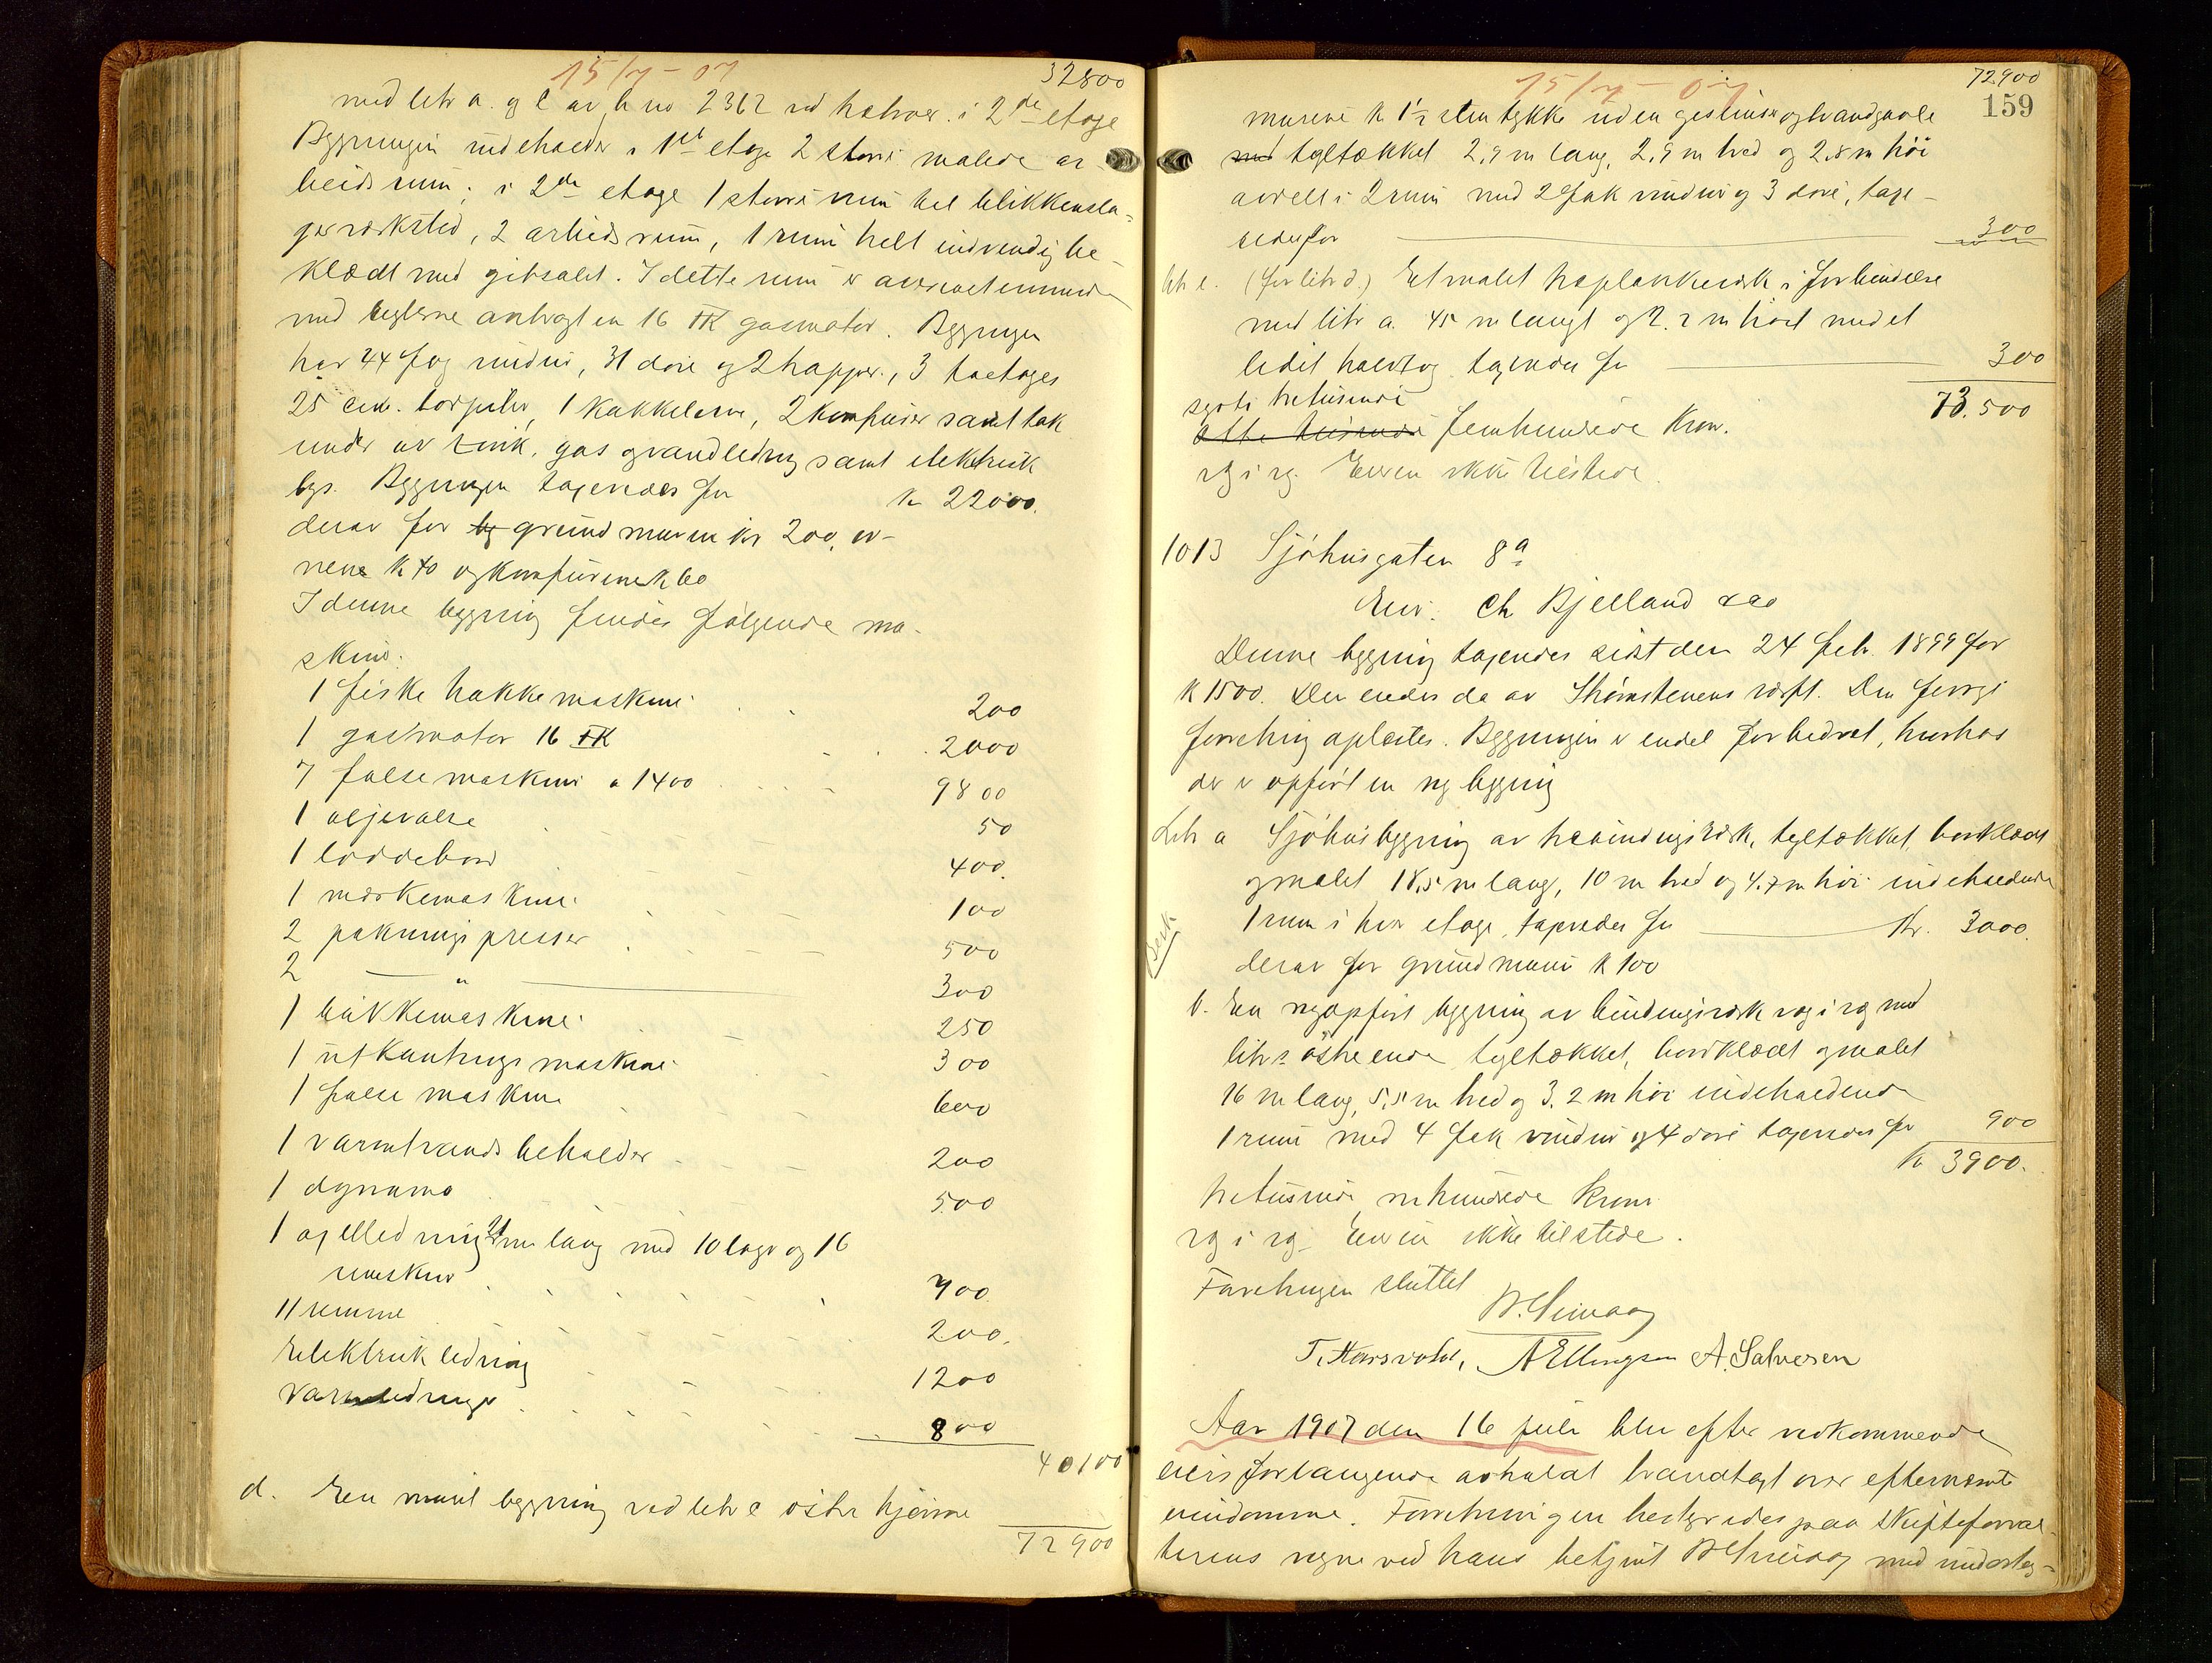 15/7 - 07
32800
med litr a. og c av b no 2362 ved halvor. i 2de etage
Bygningen indeholder i 1ste etage 2 større malede ar-
beidsrum; i 2de etage 1 større rum til blikkensla-
gerverksted, 2 arbeidsrum, 1 rum helt indvendig be-
klædt med gibsalit. I dette rum er
med teglstene anbragt en 16 HK gasmotor. Bygningen
har 44 fag vinduer, 31 døre og 2 trapper, 3 toetages
25 cm. torpiber, 1 kakkelovn, 2 komfurer samt tak
under av zink, gas og vandledning samt elektrisk
lys. Bygningen taxeredes for kr 22000.
derav for grundmuren kr 200, ov-
nene k 40 og komfurene k 60
I denne bygning findes følgende ma-
skiner:
1 fiske hakkemaskine 200
1 gasmotor 16 HK 2000
7 falsemaskiner a 1400 9800
1 oljevalse 50
1 loddebord 400.
1 merkemaskine 100
2 pakningspresser 500
2 — " — 300
1 bukkemaskine 250
1 utkantnings maskine 300
1 false maskine 600
1 varmtvandsbeholder 200
1 dynamo 500
1 axelledning 21 m lang med 10 lager og 16
remskiver 700
11 remme 200.
Elektrisk ledning 1200
Varmeledninger 800
40100
d. En muret bygning ved litr c østre hjørne
72900
15/7 - 07
72.900
159
murene k 1½ sten tykke uden gesimser og brandgavle
med tegltækket 2,9 m lang, 2,9 m bred og 2,8 m høi
avdelt i 2 rum med 2 fak vinduer og 3 døre, taxe-
redes for 300
litr e. (før litr d.) Et malet træplankeværk i forbindelse
med litr a. 45 m langt og 2.2 m høit med et
ledit halvtag taxeredes for 300
73.500
sytti tretusinde
otte tusinde femhundrede Kroner.
rg i rg. Eieren ikke tilstede.
1013 Sjøhusgaten 8a
Eier. Ch Bjelland & co
Denne bygning taxeredes sidst den 24 feb. 1899 for
k 1500. Den eiedes da av Strømstenens verft. Den forrige
forretning oplæstes. Bygningen er endel forbedret, hvorhos
der er opført en ny bygning
Litr a Sjøhusbygning av træbindingsverk, tegltækket, bordklædt
og malet 18,5 m lang, 10 m bred og 4.7 m høi indeholdende
1 rum i hver etage, taxeredes for Kr. 3000.
derav for grundmure k 100
b. En nyopført bygning av bindingsverk væg i væg med
litr a østre ende tegltækket, bordklædt og malet
16 m lang, 5,5 m bred og 3.2 m høi indeholdende
1 rum med 4 fak vinduer og 4 døre taxeredes for 900
kr 3900.
tretusinde nihundrede Kroner
rg i rg. Eieren ikke tilstede.
Forretningen sluttet
T. Hausvold, A Ellingsen A. Salvesen
Aar 1907 den 16 juli blev efter vedkommende
eiers forlangende avholdt brandtaxt over efternævnte
eiendomme. Forretningen bestyredes paa skifteforval-
terens vegne ved hans betjent med underteg-